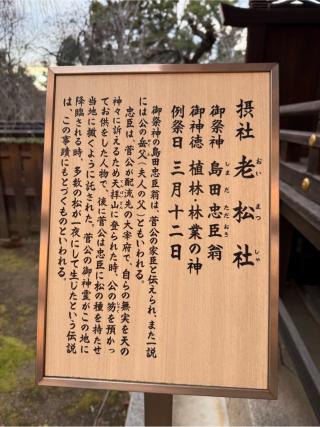 摂社 老松社
おい まつ しゃ
御祭神 島田忠臣翁
しま だ ただおみ
御神徳 植林・林業の神
例祭日 三月十二日
御祭神の島田忠臣翁は、菅公の家臣と伝えられ、また一説
には公の岳父（夫人の父）ともいわれる。
忠臣は、菅公が配流先の大宰府で、自らの無実を天の
神々に訴えるため天拝山に登られた時、公の笏を預かっ
てお供をした人物で、後に菅公は忠臣に松の種を持たせ
当地に撒くように託された。菅公の御神霊がこの地に
降臨される時、多数の松が一夜にして生じたという伝説
は、この事蹟にもとづくものといわれる。